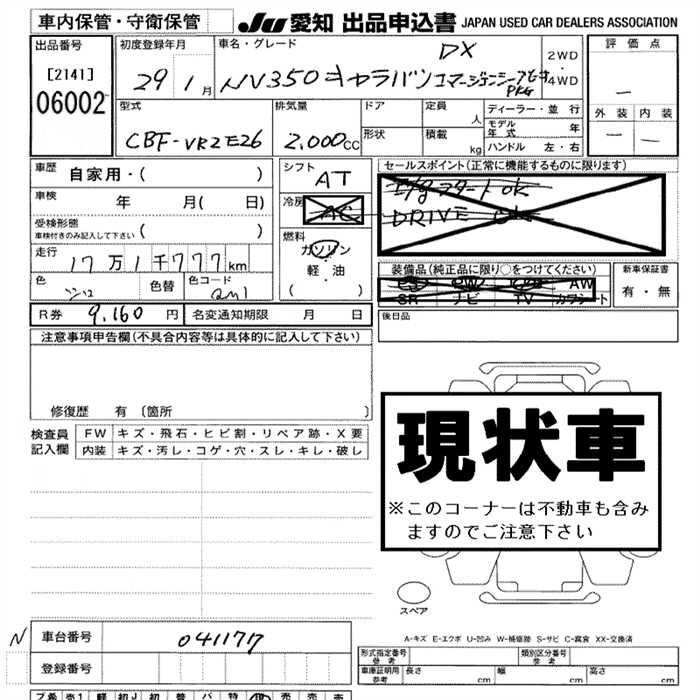 車内保管・守衛保管
JU 愛知 出品申込書 JAPAN USED CAR DEALERS ASSOCIATION
出品番号
[2141]
06002
初度登録年月
29 1 月
車名・グレード
DX
NV350キャラバン
PKG
2WD
・
4WD
評価点
—
外装 内装
— —
型式
CBF-VR2E26
排気量
2,000 CC
ドア
形状
定員
人
積載
kg
ディーラー・並行
モデル年式 年
ハンドル 左・右
車歴 自家用・( )
車検 年 月( 日)
受検形態
車検付きのみ記入して下さい ( )
走行 17万1千777km
色 色替 色コード QM1
R券 9,160 円 名変通知期限 月 日
シフト
AT
冷房
AC
燃料
ガソリン
・
軽・油
( )
セールスポイント(正常に機能するものに限ります)
E/gスタートok
DRIVE ok
装備品(純正品に限り○をつけてください)
PS PW AW
SR ナビ TV カワシート
新車保証書
有・無
後日品
注意事項申告欄(不具合内容等は具体的に記入して下さい)
修復歴 有 〔箇所 〕
検査員記入欄
FW キズ・飛石・ヒビ割・リペア跡・X要
内装 キズ・汚レ・コゲ・穴・スレ・キレ・破レ
現状車
※このコーナーは不動車も含み
ますのでご注意下さい
スペア
A-キズ E-エクボ U-凹み W-補修跡 S-サビ C-腐食 XX-交換済
N 車台番号 041177
登録番号
形式指定番号
参考
類別区分番号
参考
車庫証明用
参考
長さ cm 幅 cm 高さ cm